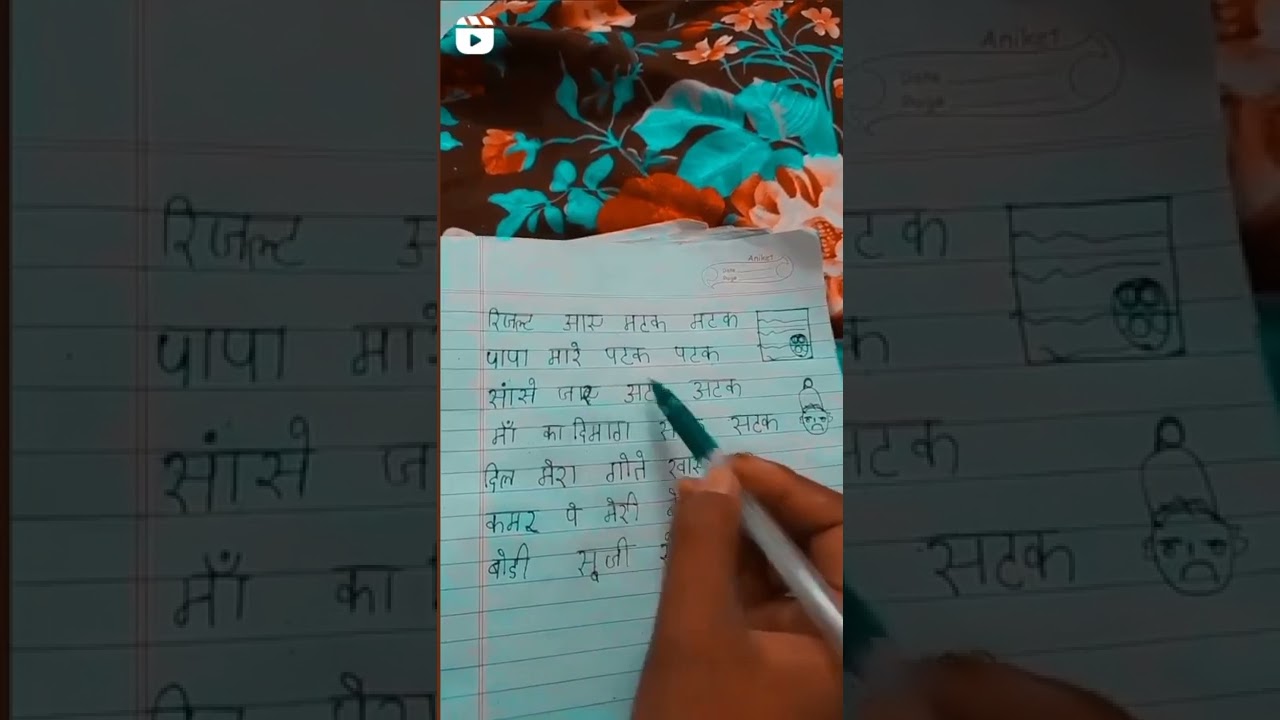 Aniket
Date
Page
रिजल्ट आए मटक मटक
पापा मारे पटक पटक
सांसे जाए अटक
माँ का दिमाग सटक
दिल मेरा गोते
कमर पे मेरी
बोडी सूजी